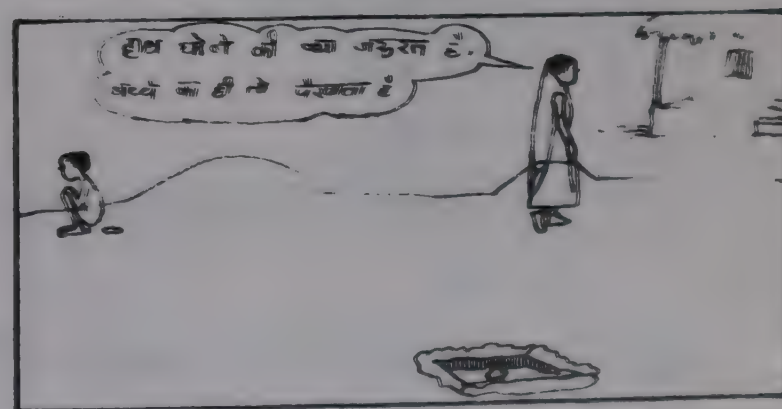 हाथ धोने की क्या जरूरत है.
बच्चे का ही तो पैखाना है